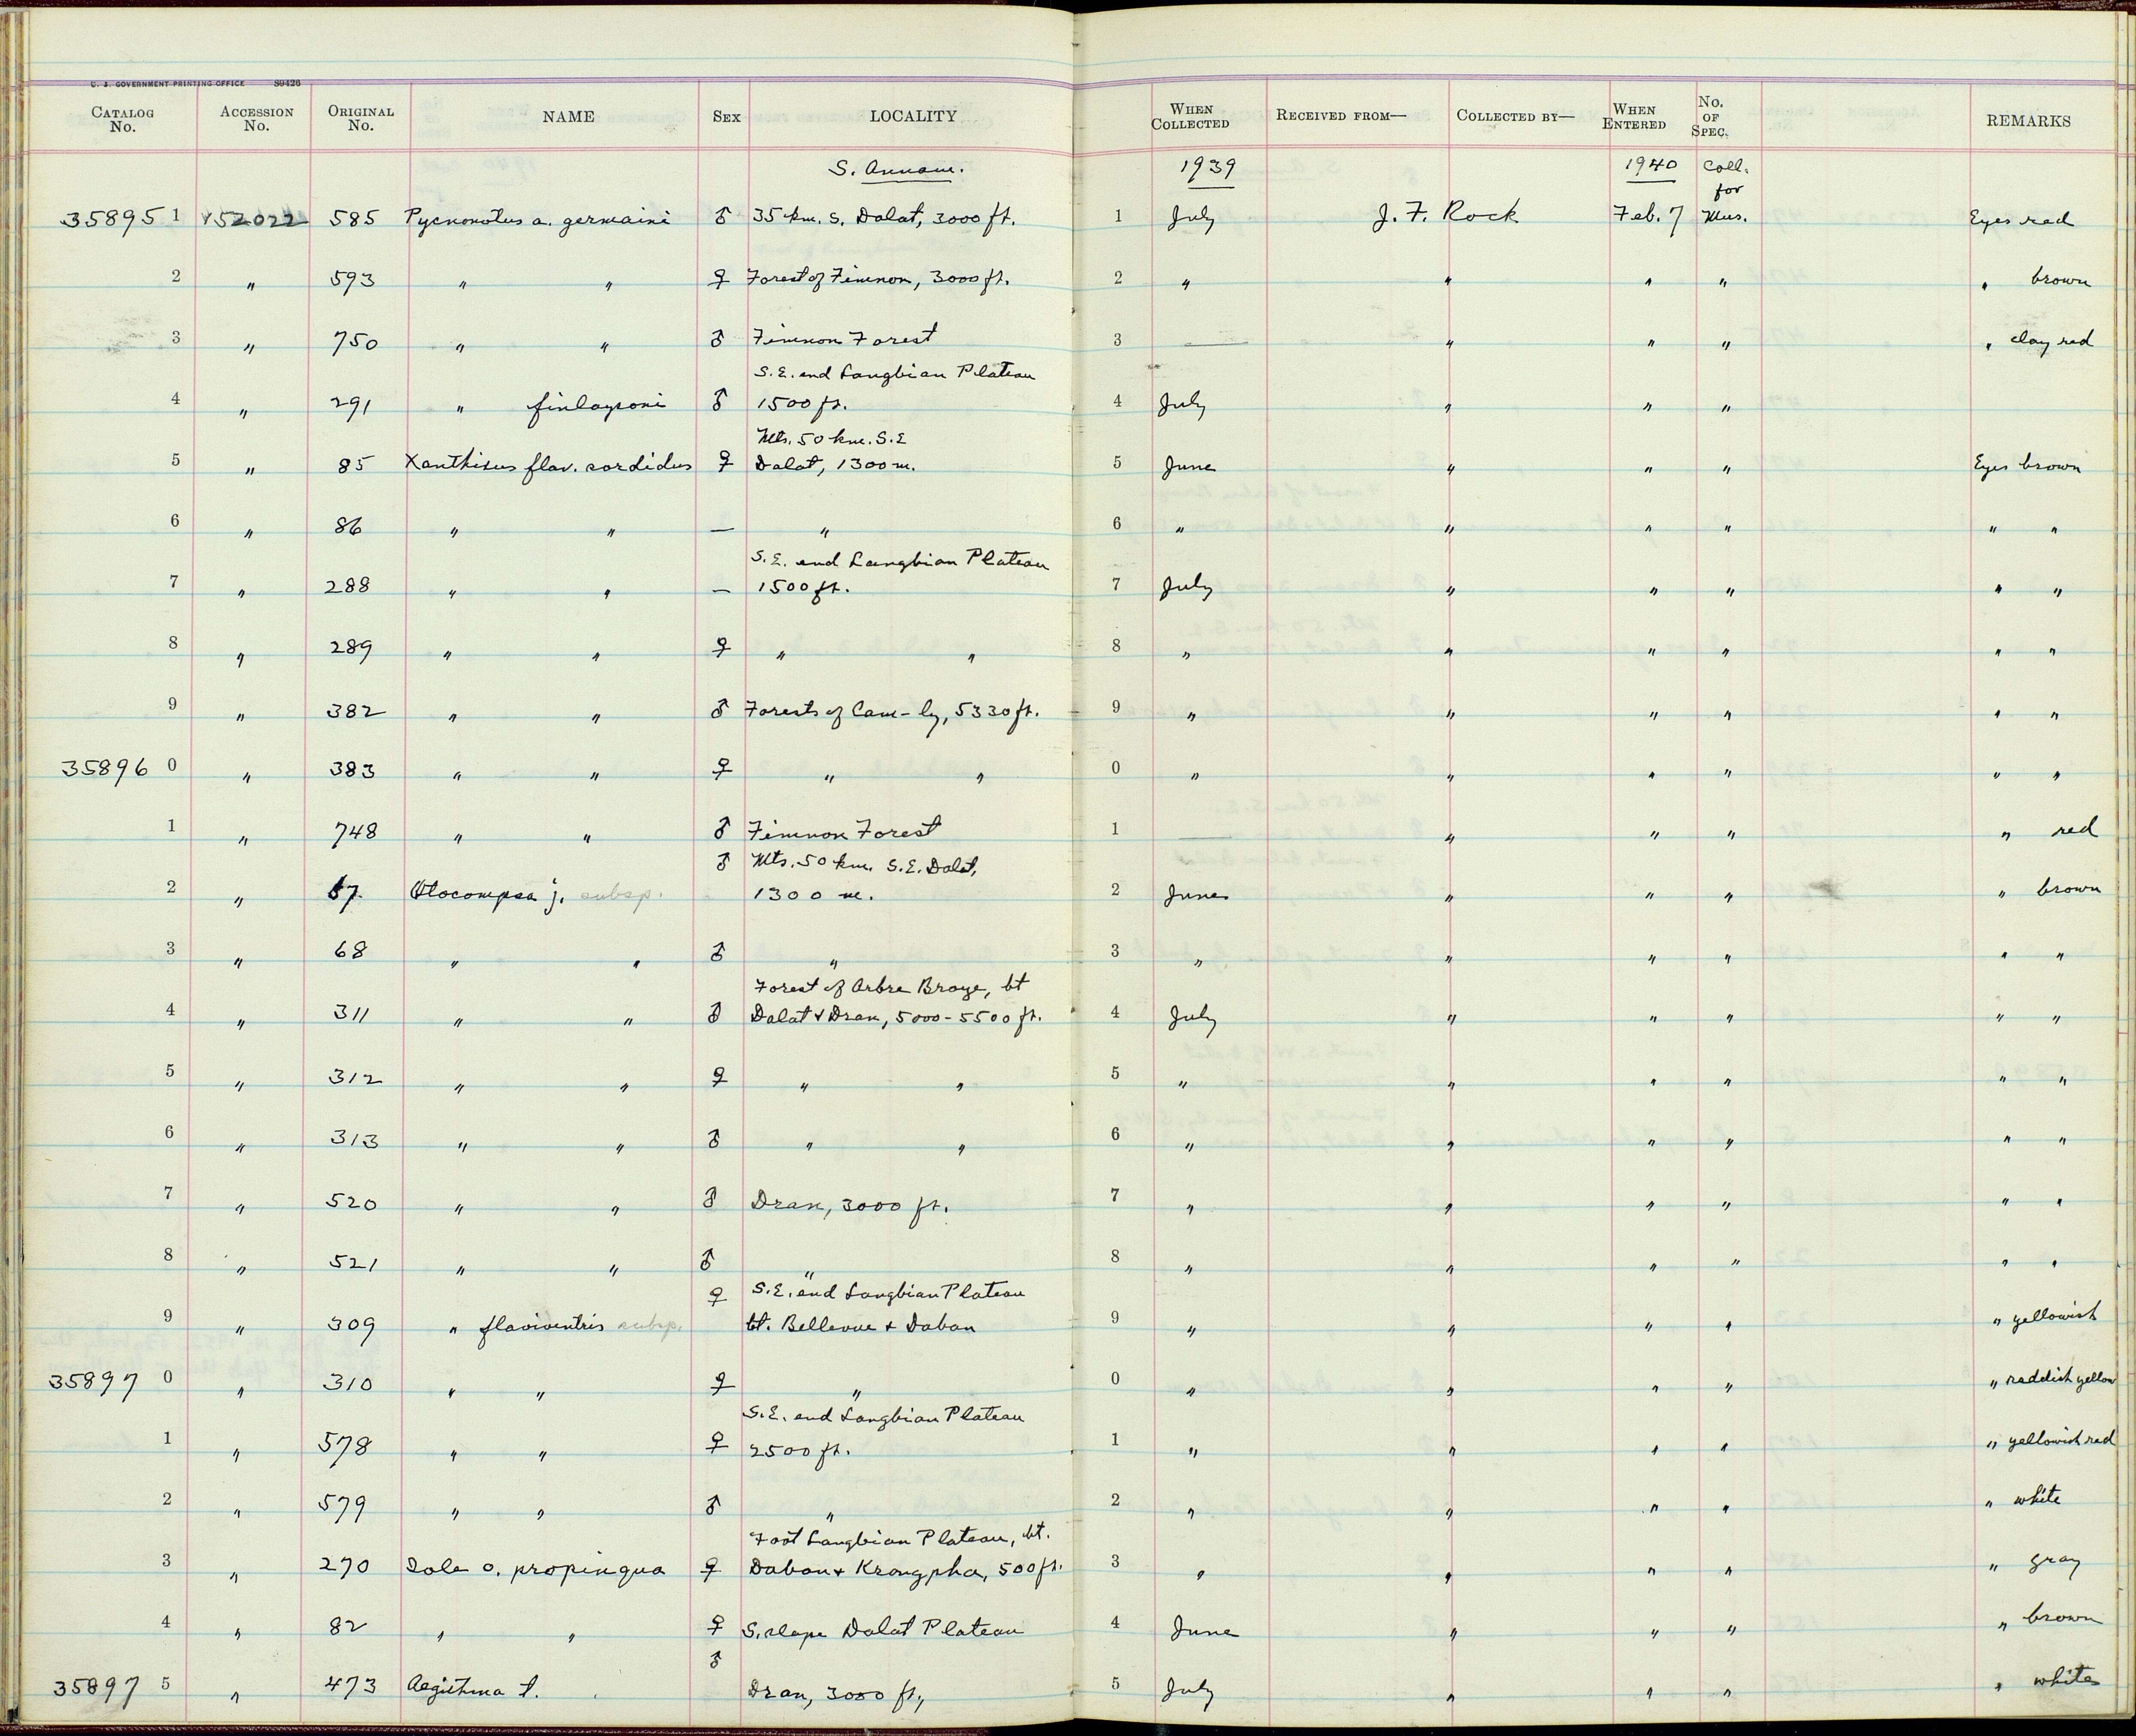 U. S. GOVERNMENT PRINTING OFFICE 89426
CATALOG No. ACCESSION No. ORIGINAL No. NAME SEX LOCALITY WHEN COLLECTED RECEIVED FROM— COLLECTED BY— WHEN ENTERED No. OF SPEC. REMARKS
S. Annam. 1939 1940 Coll. for
35895 1 152022 585 Pycnonotus a. germaini ♂ 35 km. S. Dalat, 3000 ft. 1 July J. F. Rock Feb. 7 Mus. Eyes red
2 " 593 " " ♀ Forest of Fimnon, 3000 ft. 2 " " " " " brown
3 " 750 " " ♂ Fimnon Forest 3 — " " " " clay red
S.E. end Langbian Plateau
4 " 291 " finlaysoni ♂ 1500 ft. 4 July " " "
Mts. 50 km. S.E
5 " 85 Xanthixus flav. sordidus ♀ Dalat, 1300 m. 5 June " " " Eyes brown
6 " 86 " " — " 6 " " " " " "
S.E. end Langbian Plateau
7 " 288 " " — 1500 ft. 7 July " " " " "
8 " 289 " " ♀ " " 8 " " " " " "
9 " 382 " " ♂ Forests of Cam-ly, 5330 ft. 9 " " " " " "
35896 0 " 383 " " ♀ " " 0 " " " " " "
1 " 748 " " ♂ Fimnon Forest 1 — " " " " red
♂ Mts. 50 km. S.E. Dalat,
2 " 67 Otocompsa j. subsp. 1300 m. 2 June " " " " brown
3 " 68 " " ♂ " 3 " " " " " "
Forest of Arbre Broye, bt
4 " 311 " " ♂ Dalat & Dran, 5000-5500 ft. 4 July " " " " "
5 " 312 " " ♀ " " 5 " " " " " "
6 " 313 " " ♂ " " 6 " " " " " "
7 " 520 " " ♂ Dran, 3000 ft. 7 " " " " " "
8 " 521 " " ♂ " 8 " " " " " "
♀ S.E. end Langbian Plateau
9 " 309 " flaviventris subsp. bt. Bellevue & Daban 9 " " " " " yellowish
35897 0 " 310 " " ♀ " 0 " " " " " reddish yellow
S.E. end Langbian Plateau
1 " 578 " " ♀ 2500 ft. 1 " " " " " yellowish red
2 " 579 " " ♂ " 2 " " " " " white
Foot Langbian Plateau, bt.
3 " 270 Iole o. propinqua ♀ Daban & Krongpha, 500 ft. 3 " " " " " gray
4 " 82 " " ♀ S. slope Dalat Plateau 4 June " " " " brown
♂
35897 5 " 473 Aegithina t. Dran, 3000 ft, 5 July " " " " white